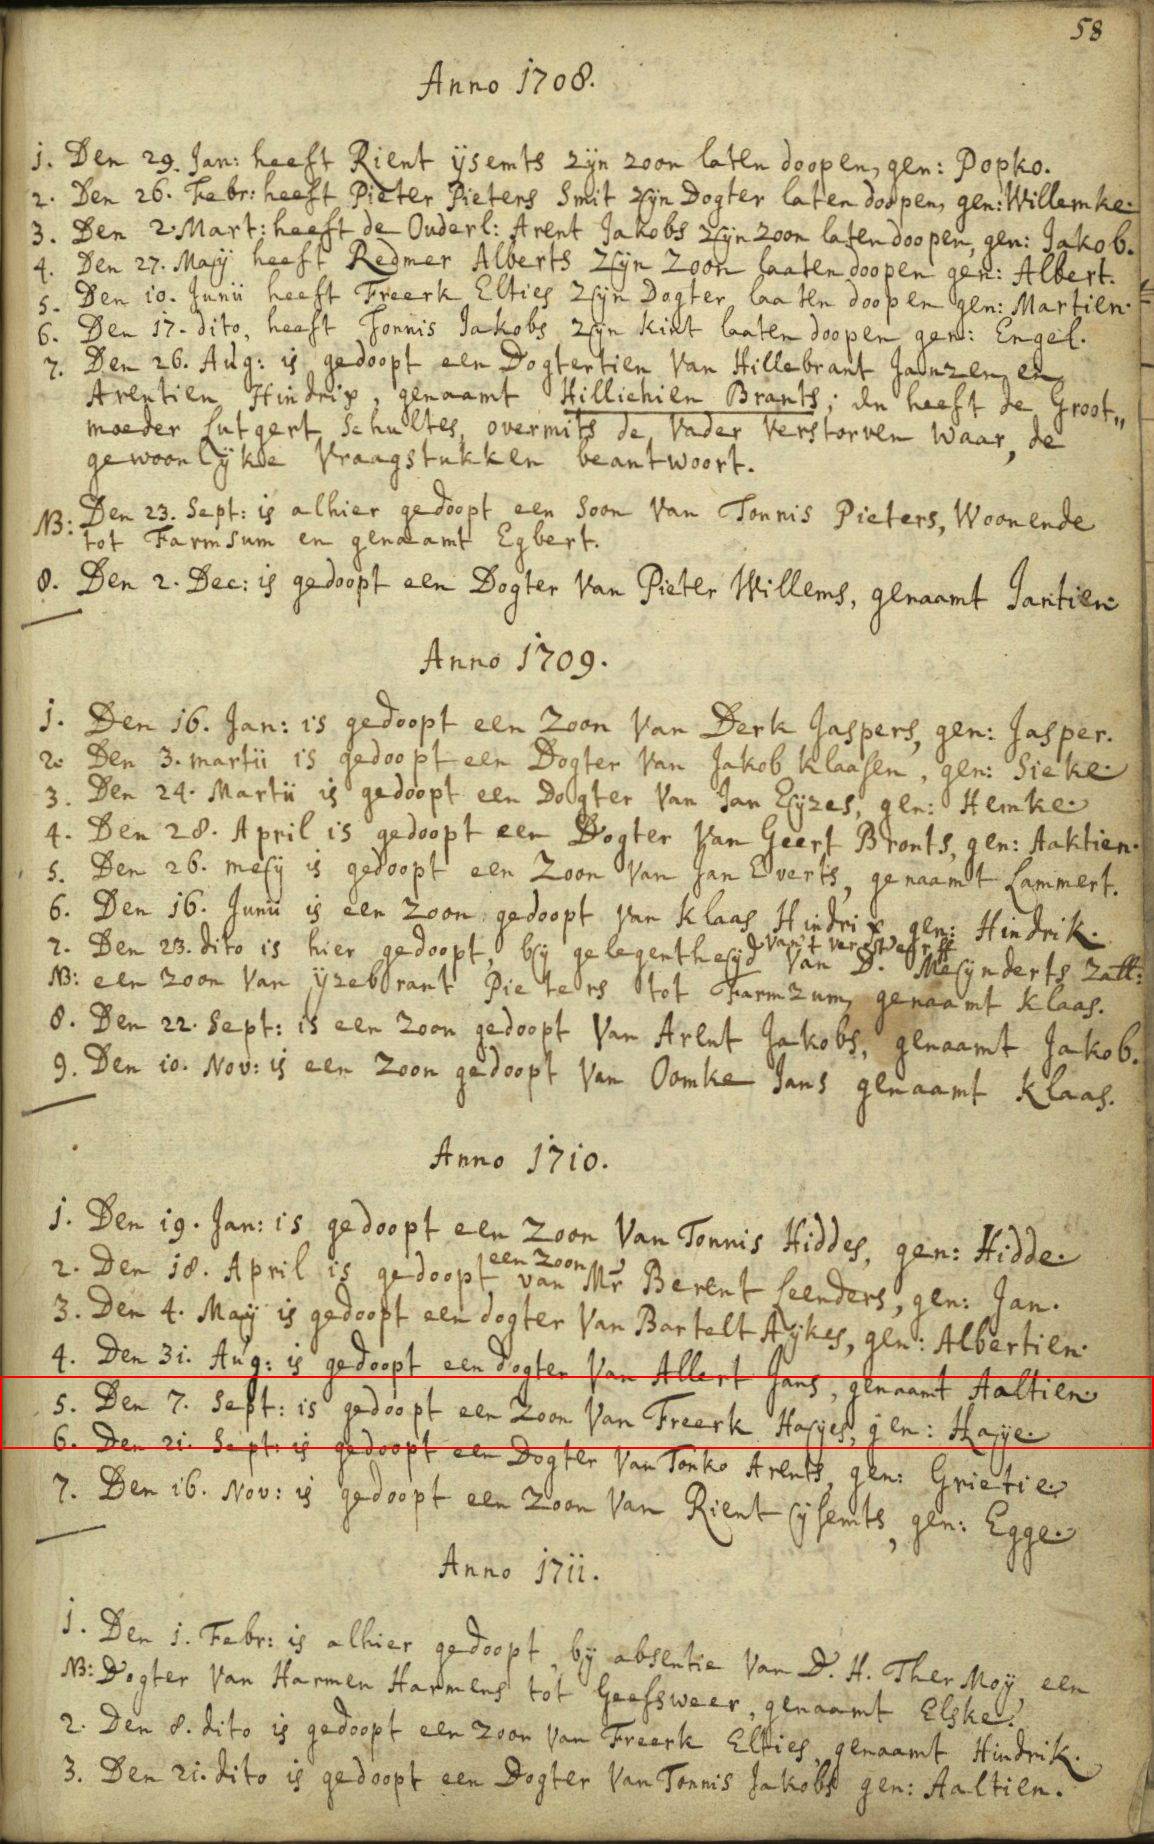 58
Anno 1708.
1. Den 29. Jan: heeft Rient ijsemts zijn zoon laten doopen, gen: Popko.
2. Den 26. Febr: heeft Pieter Pieters Smit zijn Dogter laten doopen, gen: Willemke.
3. Den 2. Mart: heeft de Ouderl: Arent Jakobs zijn zoon laten doopen, gen: Jakob.
4. Den 27. Maij heeft Redmer Alberts zijn zoon laaten doopen gen: Albert.
5. Den 10. Junii heeft Freerk Elties zijn Dogter laaten doopen gen: Martien.
6. Den 17. dito, heeft Tonnis Jakobs zijn kint laaten doopen gen: Engel.
7. Den 26. Aug: is gedoopt een Dogtertien Van Hillebrant Janzen en
Arentien Hindrix, genaamt Hillichien Brants; en heeft de Groot„
moeder Lutgert Schultes, overmits de Vader Verstorven waar, de
gewoonlijkde Vraagstukken beantwoort.
NB: Den 23. Sept: is alhier gedoopt een Soon Van Tonnis Pieters, Woonende
tot Farmsum en genaamt Egbert.
8. Den 2. Dec: is gedoopt een Dogter Van Pieter Willems, genaamt Jantien.
Anno 1709.
1. Den 16. Jan: is gedoopt een Zoon Van Derk Jaspers, gen: Jasper.
2. Den 3. martii is gedoopt een Dogter Van Jakob Klaasen, gen: Sieke.
3. Den 24. Martii is gedoopt een Dogter Van Jan Eijzes, gen: Hemke.
4. Den 28. April is gedoopt een Dogter Van Geert Bronts, gen: Aaktien.
5. Den 26. meij is gedoopt een Zoon Van Jan Everts, genaamt Lammert.
6. Den 16. Junii is een Zoon gedoopt Van Klaas Hindrix gen: Hindrik.
7. Den 23. dito is hier gedoopt, bij gelegentheijd van't versterff Van D. Meijnderts Zall:
NB: een zoon Van ijzebrant Pieters tot Farmzum, genaamt Klaas.
8. Den 22. Sept: is een Zoon gedoopt Van Arent Jakobs, genaamt Jakob.
9. Den 10. Nov: is een Zoon gedoopt Van Oomke Jans genaamt Klaas.
Anno 1710.
1. Den 19. Jan: is gedoopt een Zoon Van Tonnis Hiddes, gen: Hidde.
2. Den 18. April is gedoopt een zoon van Mr Berent Leenders, gen: Jan.
3. Den 4. Maij is gedoopt een dogter Van Bartelt Aijkes, gen: Albertien.
4. Den 31. Aug: is gedoopt een dogter Van Allert Jans, genaamt Aaltien.
5. Den 7. Sept: is gedoopt een Zoon Van Freerk Haijes, gen: Haije.
6. Den 21. Sept: is gedoopt een Dogter Van Tonko Arents, gen: Grietie.
7. Den 16. Nov: is gedoopt een Zoon Van Rient ijsemts, gen: Egge.
Anno 1711.
1. Den 1. Febr: is alhier gedoopt, bij absentie Van D. H. Ther Moij een
NB: Dogter Van Harmen Harmens tot Geefsweer, genaamt Elske.
2. Den 8. dito is gedoopt een zoon Van Freerk Elties, genaamt Hindrik.
3. Den 21. dito is gedoopt een Dogter Van Tonnis Jakobs gen: Aaltien.